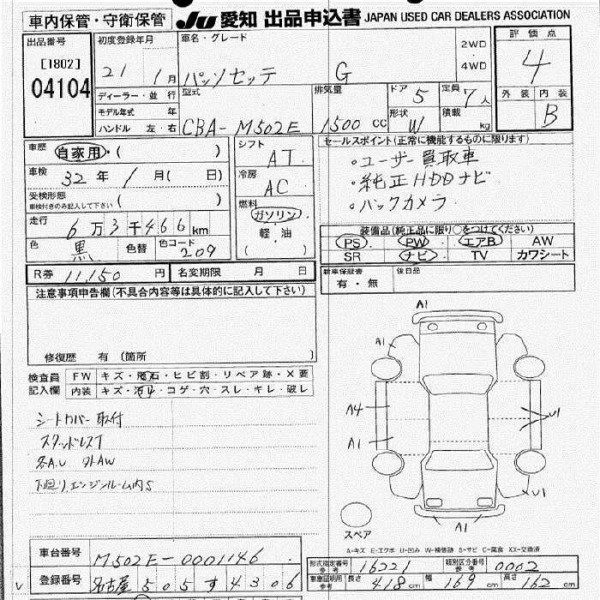 車内保管・守衛保管
JU 愛知 出品申込書 JAPAN USED CAR DEALERS ASSOCIATION
出品番号
[1802]
04104
初度登録年月
21年 1月
車名・グレード
パッソセッテ G
2WD・4WD
評価点
4
外装 内装
B
ディーラー・並行
モデル年式 年
ハンドル 左・右
型式
CBA-M502E
排気量
1500cc
ドア 5
形状 W
定員 7人
積載 kg
車歴 自家用・( )
車検 32年 1月(日)
受検形態
車検付きのみ記入して下さい ( )
走行 6万3千466km
色 黒 色替 色コード 209
シフト
AT
冷房
AC
燃料
ガソリン
軽・油
セールスポイント(正常に機能するものに限ります)
・ユーザー買取車
・純正HDDナビ
・バックカメラ
装備品(純正品に限り○をつけてください)
PS PW エアB AW
SR ナビ TV カワシート
新車保証書 後日品
有・無
R券 11,150円 名変期限 月 日
注意事項申告欄(不具合内容等は具体的に記入して下さい)
修復歴 有(箇所 )
検査員記入欄
FW キズ・飛石・ヒビ割・リペア跡・X要
内装 キズ・汚れ・コゲ・穴・スレ・キレ・破レ
シートカバー取付
スタッドレス
各A.U 外AW
下廻り、エンジンルーム内S
A1
A1
A4
A1
U1
U1
A1
スペア
A-キズ E-エクボ U-凹み W-補修跡 S-サビ C-腐食 XX-交換済
車台番号 M502E-0001146
登録番号 名古屋 505 す 4306
型式指定番号参考 16221 類別区分番号参考 0002
車庫証明用参考 長さ 418cm 幅 169cm 高さ 162cm
V